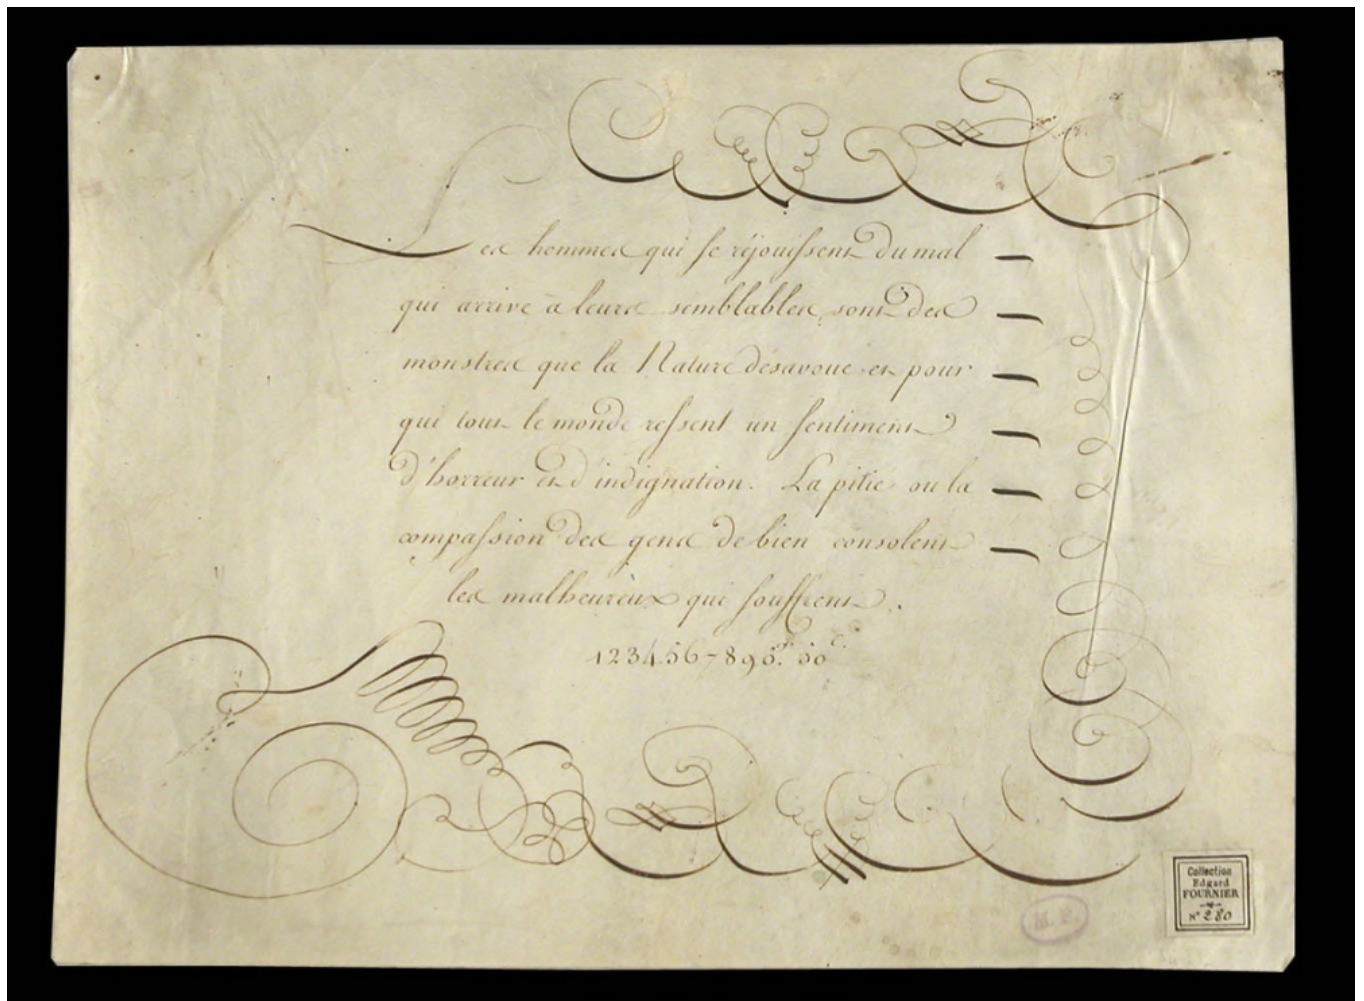 Les hommes qui se réjouissent du mal
qui arrive à leurs semblables, sont des
monstres que la Nature désavoue et pour
qui tout le monde ressent un sentiment
d'horreur et d'indignation. La pitié ou la
compassion des gens de bien consolent
les malheureux qui souffrent.
1234567890
Collection
Edgard
FOURNIER
N° 280
M. P.